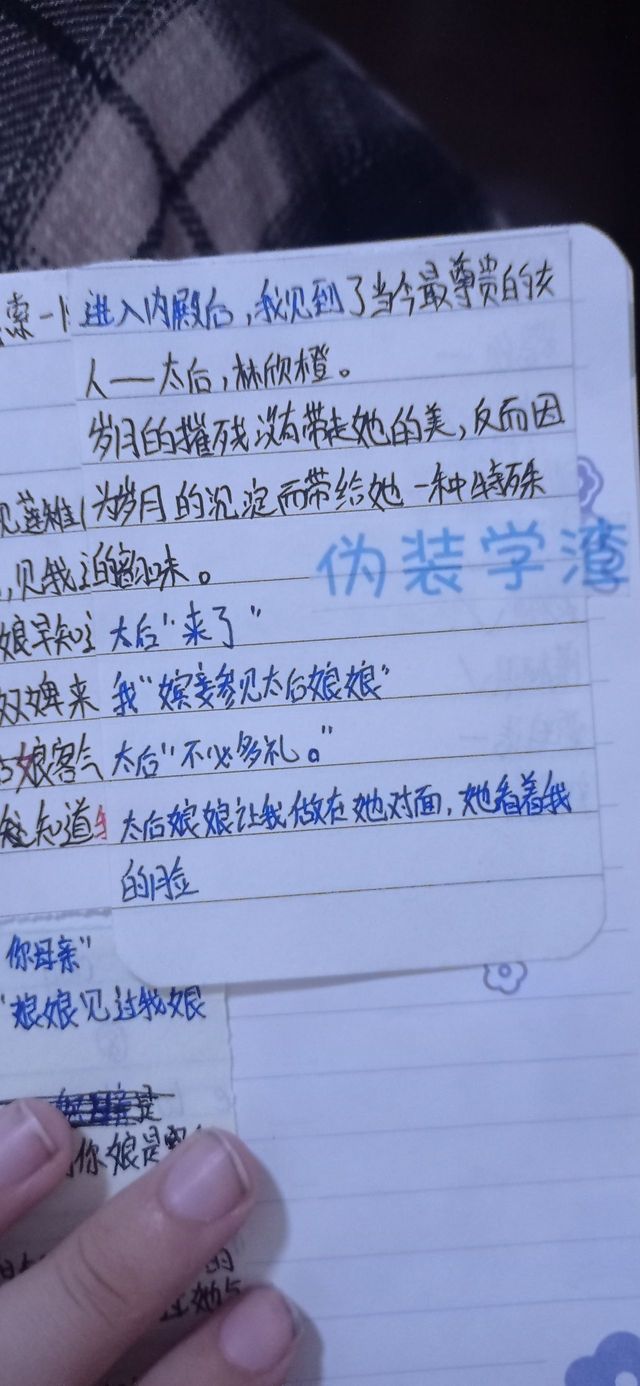 索一
进入内殿后，我见到了当今最尊贵的女
人——太后，林欣橙。
岁月的摧残没有带走她的美，反而因
为岁月的沉淀而带给她一种特殊
的韵味。
伪装学渣
太后“来了”
我“嫔妾参见太后娘娘”
太后“不必多礼。”
太后娘娘让我做在她对面，她看着我
的脸
，见我
娘早知
奴婢来
娘客气
知道
你母亲”
“娘娘见过我娘
是
你娘是
的